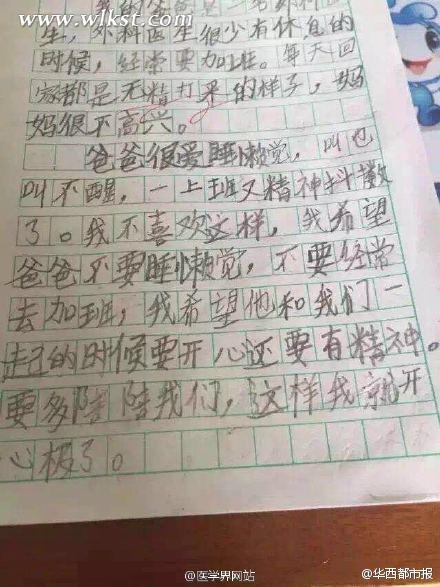 www.wlkst.com
我的爸爸是一名外科医
生，外科医生很少有休息的
时候，经常要加班。每天回
家都是无精打采的样子，妈
妈很不高兴。
爸爸很爱睡懒觉，叫也
叫不醒，一上班又精神抖擞
了。我不喜欢这样，我希望
爸爸不要睡懒觉，不要经常
去加班，我希望他和我们一
起的时候要开心还要有精神。
要多陪陪我们，这样我就开
心极了。
@医学界网站
@华西都市报